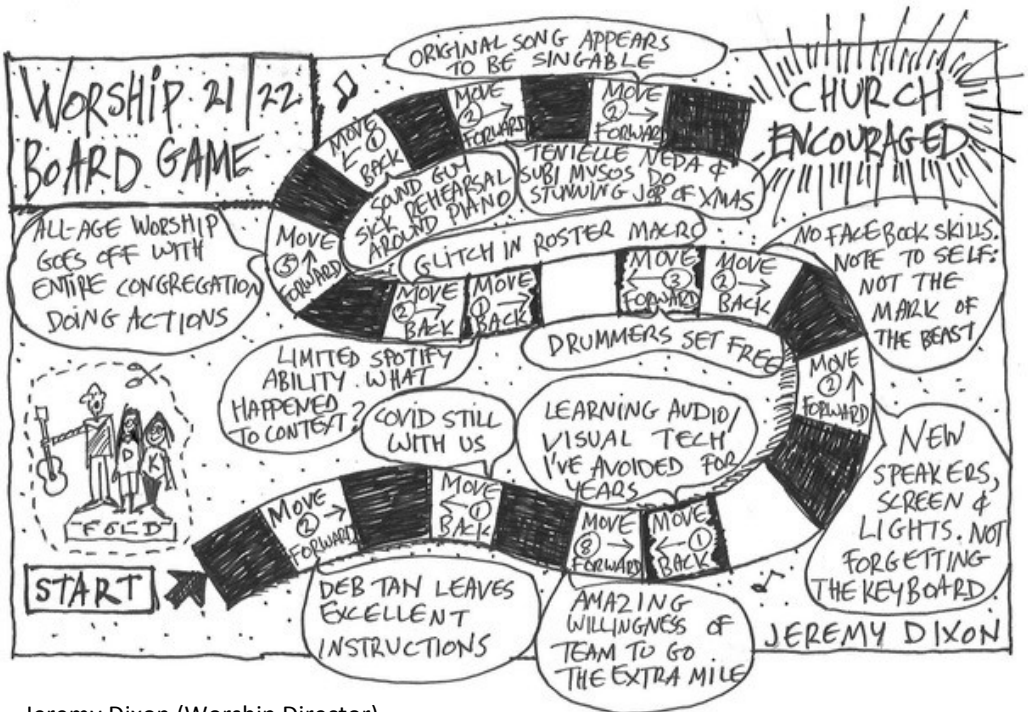 WORSHIP 21/22
BOARD GAME
ORIGINAL SONG APPEARS
TO BE SINGABLE
CHURCH
ENCOURAGED
MOVE
← ①
BACK
MOVE
② →
FORWARD
MOVE
② →
FORWARD
SOUND GUY
SICK REHEARSAL
AROUND PIANO
TENIELLE NEDA &
SUBI MUSOS DO
STUNNING JOB OF XMAS
ALL-AGE WORSHIP
GOES OFF WITH
ENTIRE CONGREGATION
DOING ACTIONS
MOVE
③ ↑
FORWARD
GLITCH IN ROSTER MACRO
NO FACEBOOK SKILLS.
NOTE TO SELF:
NOT THE
MARK OF
THE BEAST
MOVE
② →
BACK
MOVE
① →
BACK
MOVE
← ③
FORWARD
MOVE
② →
BACK
DRUMMERS SET FREE
LIMITED SPOTIFY
ABILITY. WHAT
HAPPENED
TO CONTEXT?
MOVE
② ↑
FORWARD
COVID STILL
WITH US
LEARNING AUDIO/
VISUAL TECH
I'VE AVOIDED FOR
YEARS
NEW
SPEAKERS,
SCREEN &
LIGHTS. NOT
FORGETTING
THE KEYBOARD
D K
FOLD
MOVE
② →
FORWARD
MOVE
← ①
BACK
MOVE
⑧ →
FORWARD
MOVE
← ①
BACK
START
DEB TAN LEAVES
EXCELLENT
INSTRUCTIONS
AMAZING
WILLINGNESS OF
TEAM TO GO
THE EXTRA MILE
JEREMY DIXON
Jeremy Dixon (Worship Director)